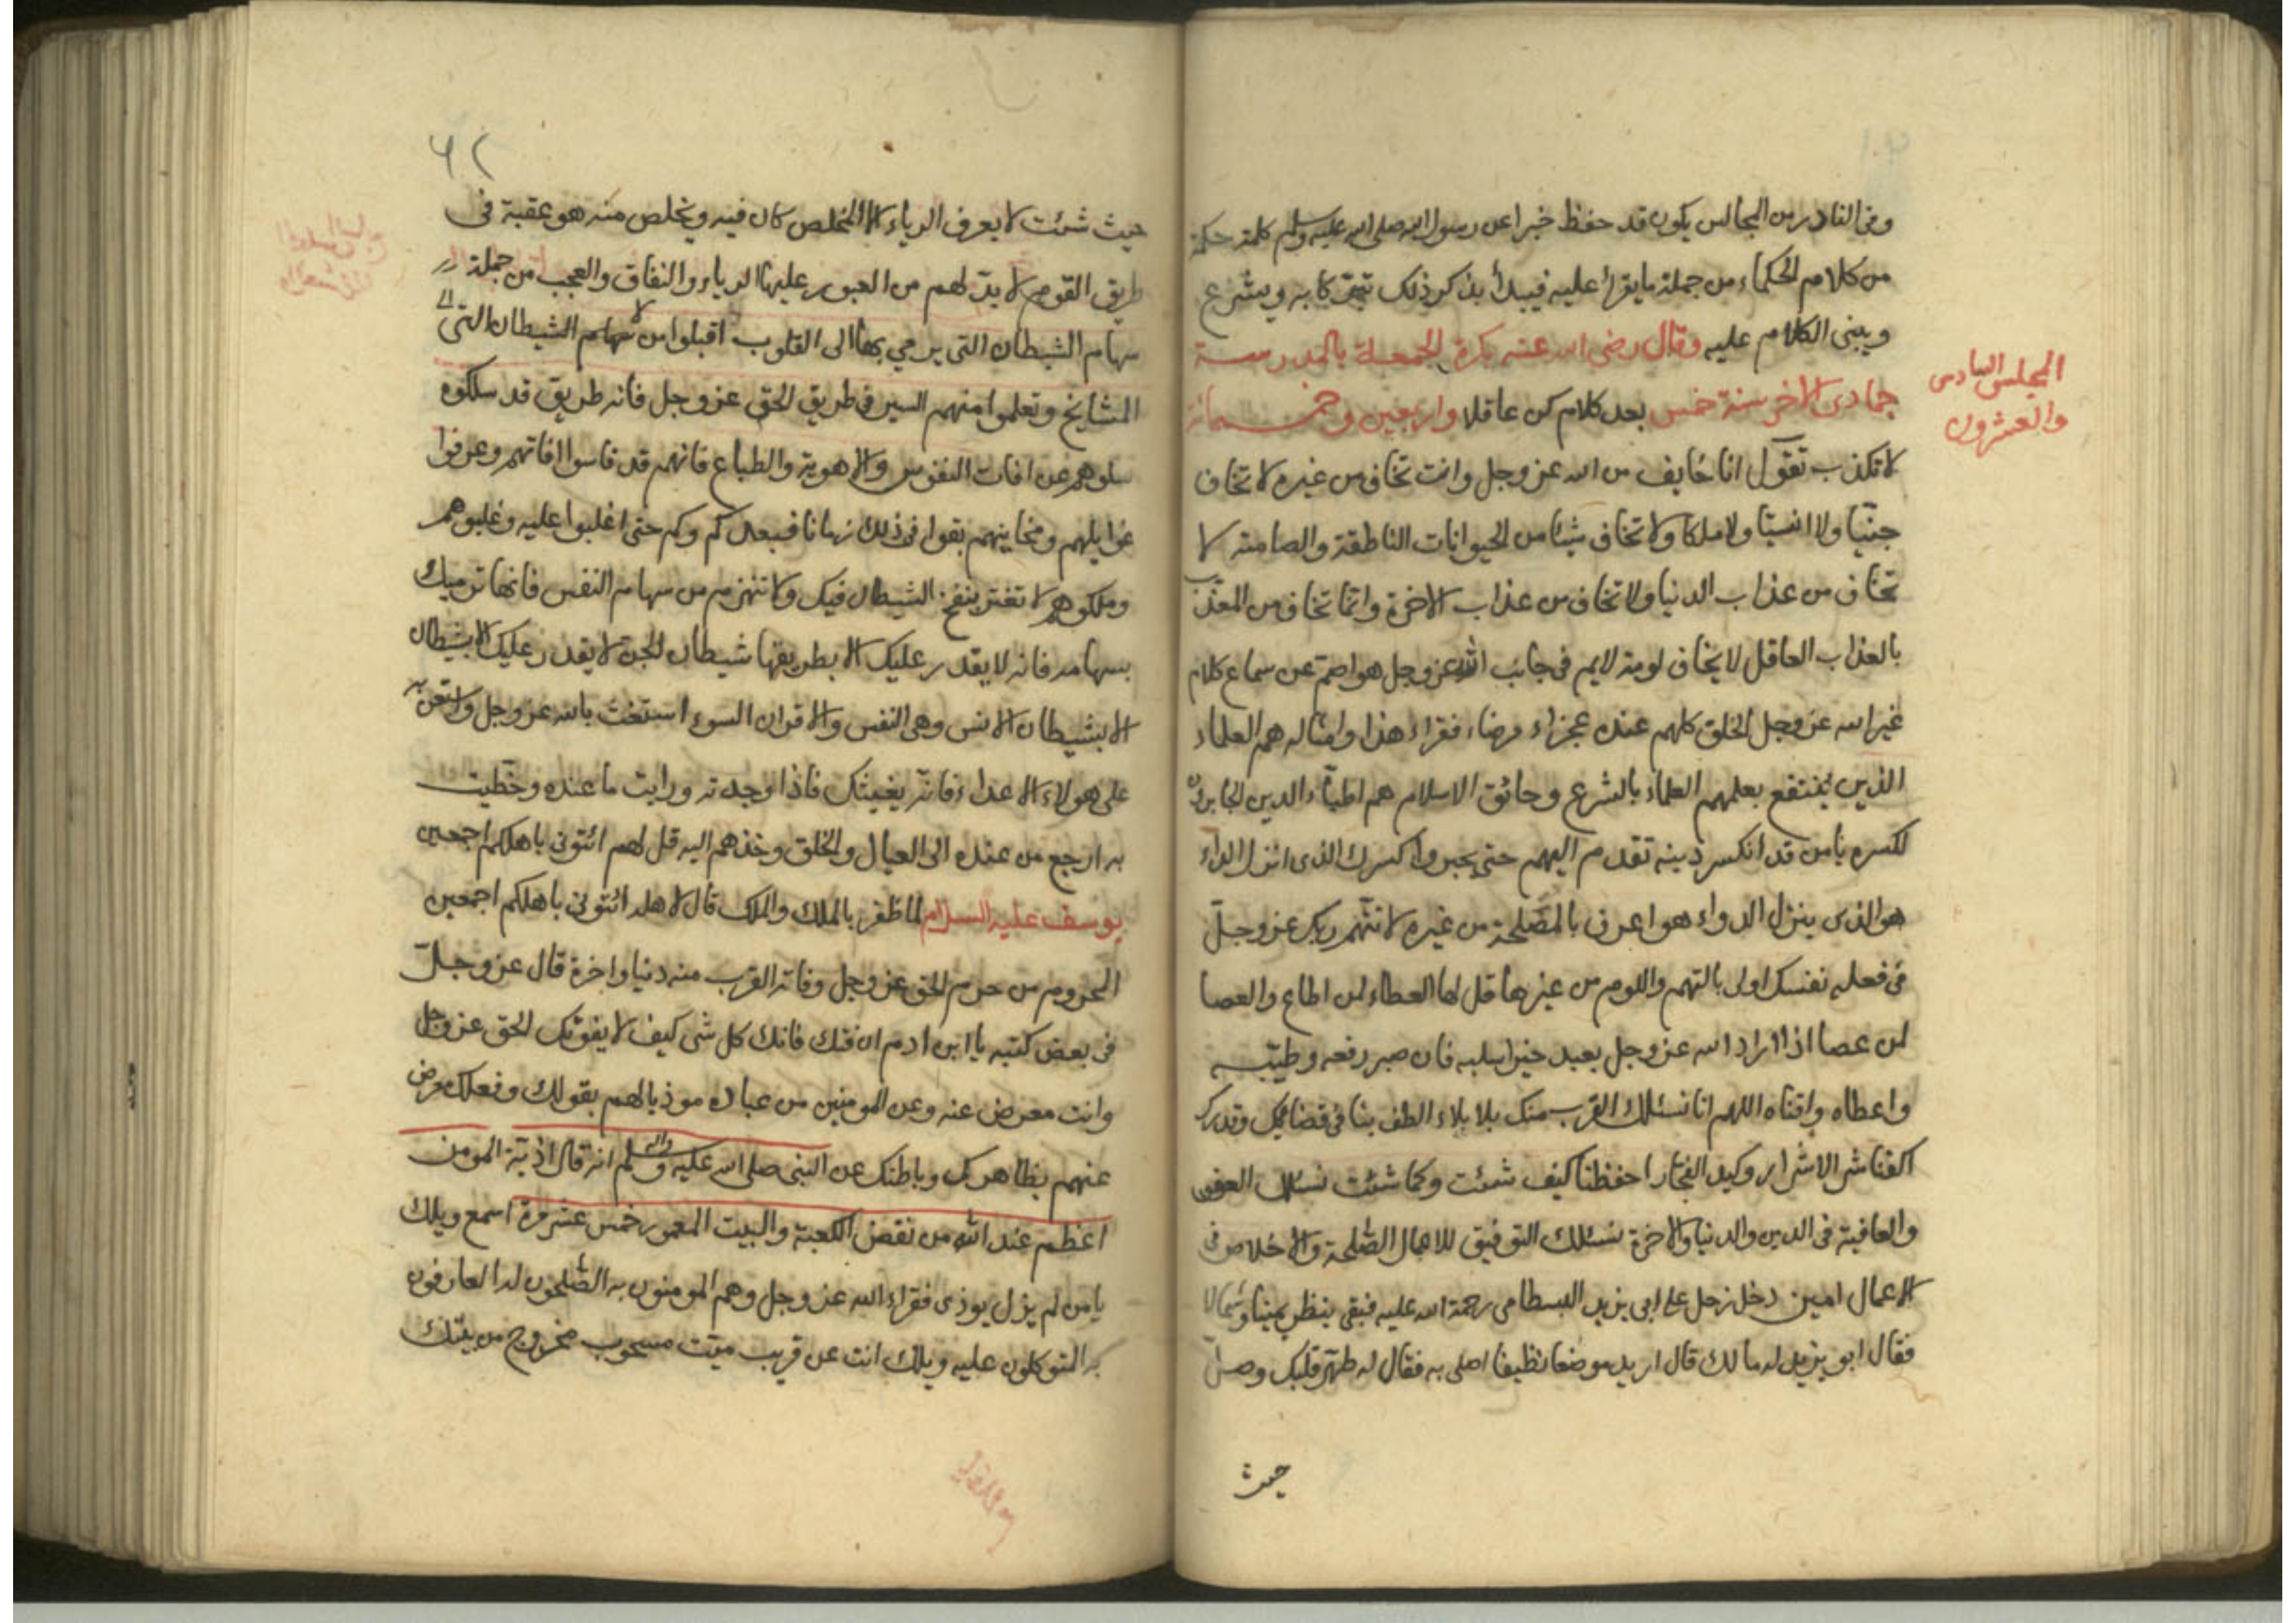 وفى النادر من المجالس يكون قد حفظ خبرا عن رسول الله صلى الله عليه وسلم كلمة حكمة
من كلام الحكماء من جملة ما يقرأ عليه فيبدأ بذكر ذلك تبركا به ويشرع
ويبنى الكلام عليه وقال رضى الله عنه بكرة الجمعة بالمدرسة
المجلس السادس
والعشرون
جمادى الاخر سنة خمس بعد كلام كن عاقلا واربعين وخمسمائة
لا تكذب تقول انا خايف من الله عز وجل وانت تخاف من غيره لا تخاف
جنيا ولا انسيا ولا ملكا ولا تخاف شيئا من الحيوانات الناطقة والصامتة لا
تخاف من عذاب الدنيا ولا تخاف من عذاب الاخرة وانما تخاف من المعذب
بالعذاب العاقل لا يخاف لومة لايم فى جانب الله عز وجل هو اصم عن سماع كلام
غير الله عز وجل الخلق كلهم عنده عجزاء مرضاء فقراء هذا وامثاله هم العلماء
الذين ينتفع بعلمهم العلماء بالشرع وحائق الاسلام هم اطباء الدين الجابرون
لكسره يا من قد انكسر دينه تقدم اليهم حتى يجبروا كسرك الذى انزل الداء
هو الذى ينزل الدواء هو اعرف بالمصلحة من غيره لا تتهم ربك عز وجل
فى فعله نفسك اولى بالتهم واللوم من غيرها قل لها العطاء لمن اطاع والعصا
لمن عصا اذا اراد الله عز وجل بعبد خيرا سلبه فان صبر رفعه وطيبه
واعطاه واقناه اللهم انا نسئلك القرب منك بلا بلاء الطف بنا فى قضائك وقدرك
اكفنا شر الاشرار وكيد الفجار احفظنا كيف شئت وكما شئت نسئلك العفو
والعافية فى الدين والدنيا والاخرة نسئلك التوفيق للاعمال الصلحة والاخلاص فى
الاعمال امين دخل رجل على ابى يزيد البسطامى رحمة الله عليه فبقى ينظر يمينا وشمالا
فقال ابو يزيد له ما لك قال اريد موضعا نظيفا اصلى به فقال له طهر قلبك وصل
حيث
٦٢
حيث شئت لا يعرف الرياء الا المخلص كان فيه ويخلص منه هو عقبة فى
طريق القوم لا بد لهم من العبور عليها الرياء والنفاق والعجب من جملة
سهام الشيطان التى يرمي بها الى القلوب اقبلوا من سهام الشيطان التى
المشايخ وتعلموا منهم السير فى طريق الحق عز وجل فانه طريق قد سلكوه
سلوهم عن افات النفوس والاهوية والطباع فانهم قد قاسوا افاتهم وعرفوا
غوايلهم بقوا فى ذلك زمانا فبعد كم وكم حتى غلبوا عليه وغلبوهم
وملكوهم لا تغتر بنفخ الشيطان فيك ولا تنهزم من سهام النفس فانها ترميك
بسهامه فانه لا يقدر عليك الا بطريقها شيطان الجن لا يقدر عليك الا بشيطان
الا بشيطان الانس وهى النفس والاقران السوء استغث بالله عز وجل واستعن به
على هولاء الاعداء فانه يغيثك فاذا وجدته ورايت ما عنده وحظيت
به ارجع من عنده الى العيال والخلق وخذهم اليه قل لهم ائتونى باهلكم اجمعين
يوسف عليه السلام لما ظفر بالملك والملك قال لاهله ائتونى باهلكم اجمعين
المحروم من حرم الحق عز وجل وفاته القرب منه دنيا واخرة قال عز وجل
فى بعض كتبه يا ابن ادم ان فتك فاتك كل شى كيف لا يفوتك الحق عز وجل
وانت معرض عنه وعن المومنين من عباده موذيا لهم بقولك وفعلك معرض
عنهم بظاهرك وباطنك عن النبى صلى الله عليه واله وسلم انه قال اذية المومن
اعظم عند الله من نقض الكعبة والبيت المعمور خمس عشر مرة اسمع ويلك
يا من لم يزل يوذى فقراء الله عز وجل وهم المومنون به الصلحون له العارفون
به المتوكلون عليه ويلك انت عن قريب ميت مسحوب مخروج من بيتك